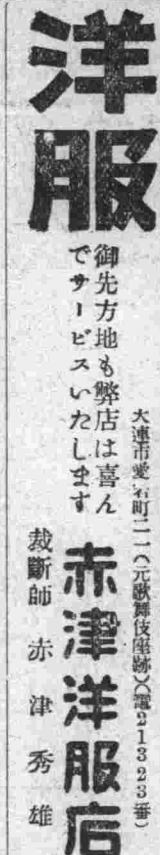 洋服
御先方地も弊店は喜ん
でサービスいたします
大連市愛宕町二一(元歌舞伎座跡)(電21323番)
赤津洋服店
裁斷師 赤津秀雄